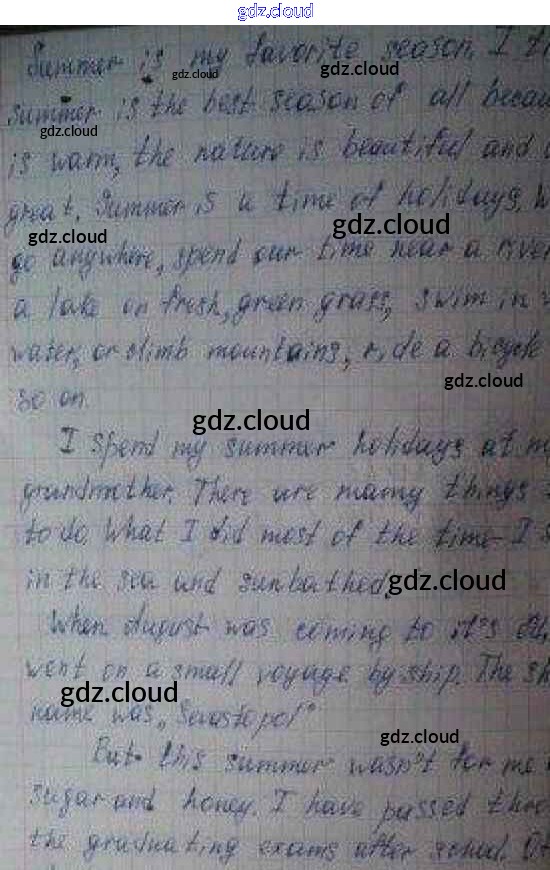 gdz.cloud
Summer is my favorite season. I
gdz.cloud
gdz.cloud
summer is the best season of all
gdz.cloud
is warm, the nature is beautiful and
great. Summer is a time of holidays.
gdz.cloud
gdz.cloud
go anywhere, spend our time near a river
a lake on fresh, green grass, swim in
water, or climb mountains, ride a bicycle
gdz.cloud
so on.
gdz.cloud
I spend my summer holidays at
grandmother. There are many things
to do. What I did most of the time - I
in the sea and sunbathed.
gdz.cloud
When August was coming to it's
went on a small voyage by ship. The
gdz.cloud
name was „Sevastopol"
gdz.cloud
But this summer wasn't for me
sugar and honey. I have passed
the graduating exams after school.